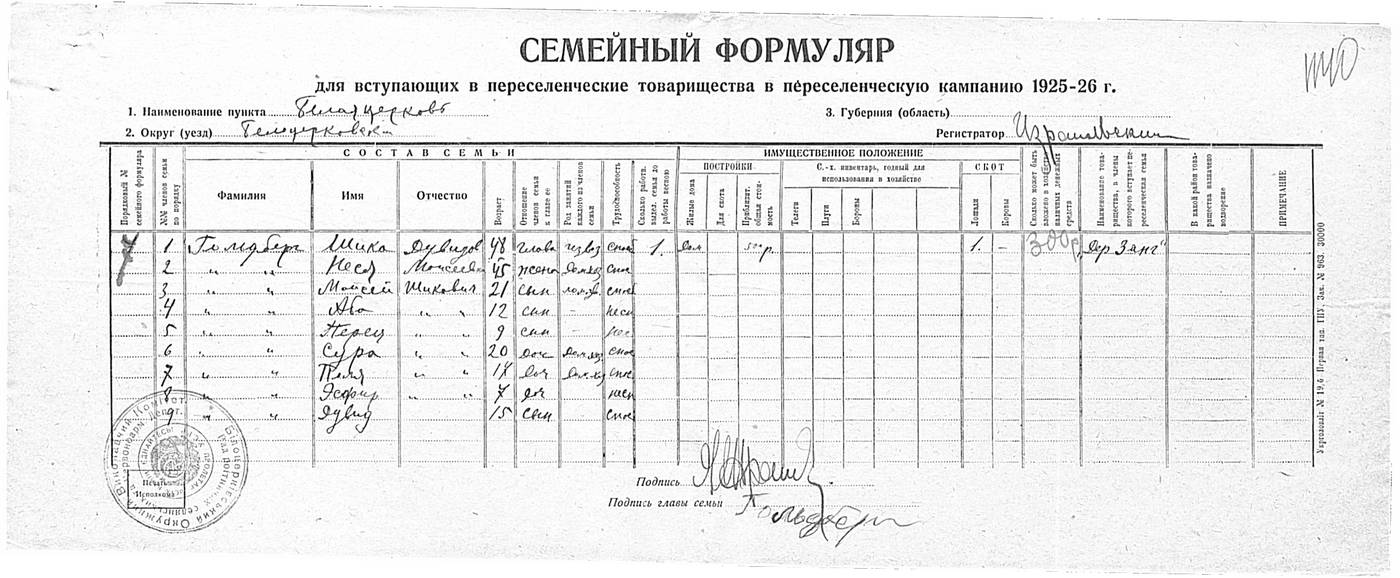 СЕМЕЙНЫЙ ФОРМУЛЯР
для вступающих в переселенческие товарищества в переселенческую кампанию 1925-26 г.
1. Наименование пункта Белая церковь 3. Губерния (область)
2. Округ (уезд) Регистратор
СОСТАВ СЕМЬИ ИМУЩЕСТВЕННОЕ ПОЛОЖЕНИЕ
ПОСТРОЙКИ С.-х. инвентарь, годный для использования в хозяйстве СКОТ
Порядковый № семейного формуляра №№ членов семьи по порядку Фамилия Имя Отчество Возраст Отношение членов семьи к главе ее Род занятий каждого из членов семьи Трудоспособность Сколько работн. выдел. семья до работы весною Жилые дома Для скота Приблизит. общая стоимость Телеги Плуги Бороны Лошади Коровы Сколько может быть вложено в хозяйство наличных денежных средств Наименование товарищества, в члены которого вступает переселенческая семья В какой район товарищества назначено водворение ПРИМЕЧАНИЕ
1 Гольдберг Шика Дувидов 48 глава извоз спос 1. Дом 500 р. 1. – 300 р „Дер Занг“
2 „ „ Неся Моисеевн 45 жена домхоз спос
3 „ „ Моисей Шикович 21 сын спос
4 „ „ Аба „ „ 12 сын – несп
5 „ „ Перец „ „ 9 сын – нес
6 „ „ Сура „ „ 20 доч домхоз спос
7 „ „ „ „ доч домхоз спос
8 „ „ Эсфир „ „ 7 доч несп
9 „ „ Дувид 15 сын спос
Подпись
Подпись главы семьи Гольдберг
Білоцерківський Окружний Виконавчий Комітет
Укрголовліт № 19,6 Первая тип. ГПУ. Зак. № 963. 30000